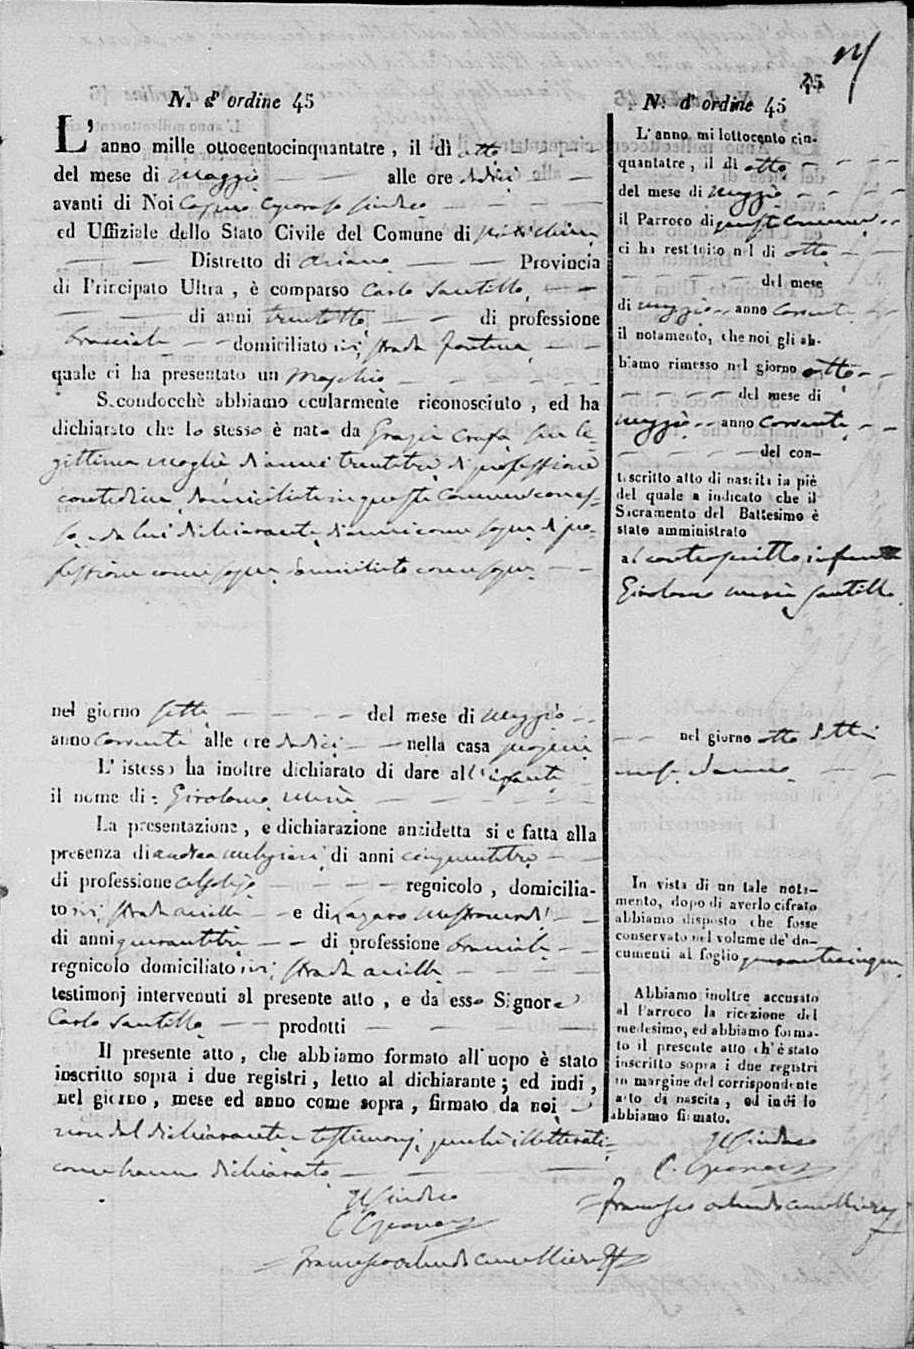 45
N. d'ordine 45
L'anno mille ottocentocinquantatre, il dì otto
del mese di Maggio alle ore dodici
avanti di Noi Sindaco
ed Uffiziale dello Stato Civile del Comune di
Distretto di Ariano Provincia
di Principato Ultra, è comparso Carlo Santillo
di anni trentotto di professione
bracciale domiciliato ivi strada fontana
quale ci ha presentato un Maschio
Secondocchè abbiamo ocularmente riconosciuto, ed ha
dichiarato che lo stesso è nato da Grazia sua le-
gittima moglie di anni trentatre di professione
contadina domiciliata in questo Comune
da lui dichiarante di anni come sopra di pro-
fessione come sopra domiciliato come sopra
nel giorno sette del mese di Maggio
anno corrente alle ore dodici nella casa propria
L'istesso ha inoltre dichiarato di dare all'infante
il nome di: Girolamo Maria
La presentazione, e dichiarazione anzidetta si e fatta alla
presenza di Andrea di anni cinquantatre
di professione regnicolo, domicilia-
to ivi strada e di Lazaro
di anni quarantatre di professione bracciale
regnicolo domiciliato ivi strada
testimonj intervenuti al presente atto, e da esso Signore
Carlo Santillo prodotti
Il presente atto, che abbiamo formato all'uopo è stato
inscritto sopra i due registri, letto al dichiarante; ed indi,
nel giorno, mese ed anno come sopra, firmato da noi
non dal dichiarante e testimonj perché illetterati
come hanno dichiarato
Il Sindaco
Francesco Orlando Cancelliere
N. d'ordine 45
L'anno millottocento cin-
quantatre, il dì otto
del mese di Maggio
il Parroco di questo Comune
ci ha restituito nel dì otto
del mese
di Maggio anno corrente
il notamento, che noi gli ab-
biamo rimesso nel giorno otto
del mese di
Maggio anno corrente
del con-
trascritto atto di nascita in piè
del quale a indicato che il
Sacramento del Battesimo è
stato amministrato
al controscritto infante
Girolamo Maria Santillo
nel giorno otto detto
mese ed anno
In vista di un tale nota-
mento, dopo di averlo cifrato
abbiamo disposto che fosse
conservato nel volume de' do-
cumenti al foglio quarantacinque
Abbiamo inoltre accusato
al Parroco la ricezione del
medesimo, ed abbiamo forma-
to il presente atto ch'è stato
inscritto sopra i due registri
in margine del corrispondente
atto di nascita, ed indi lo
abbiamo firmato.
Il Sindaco
Francesco Orlando Cancelliere